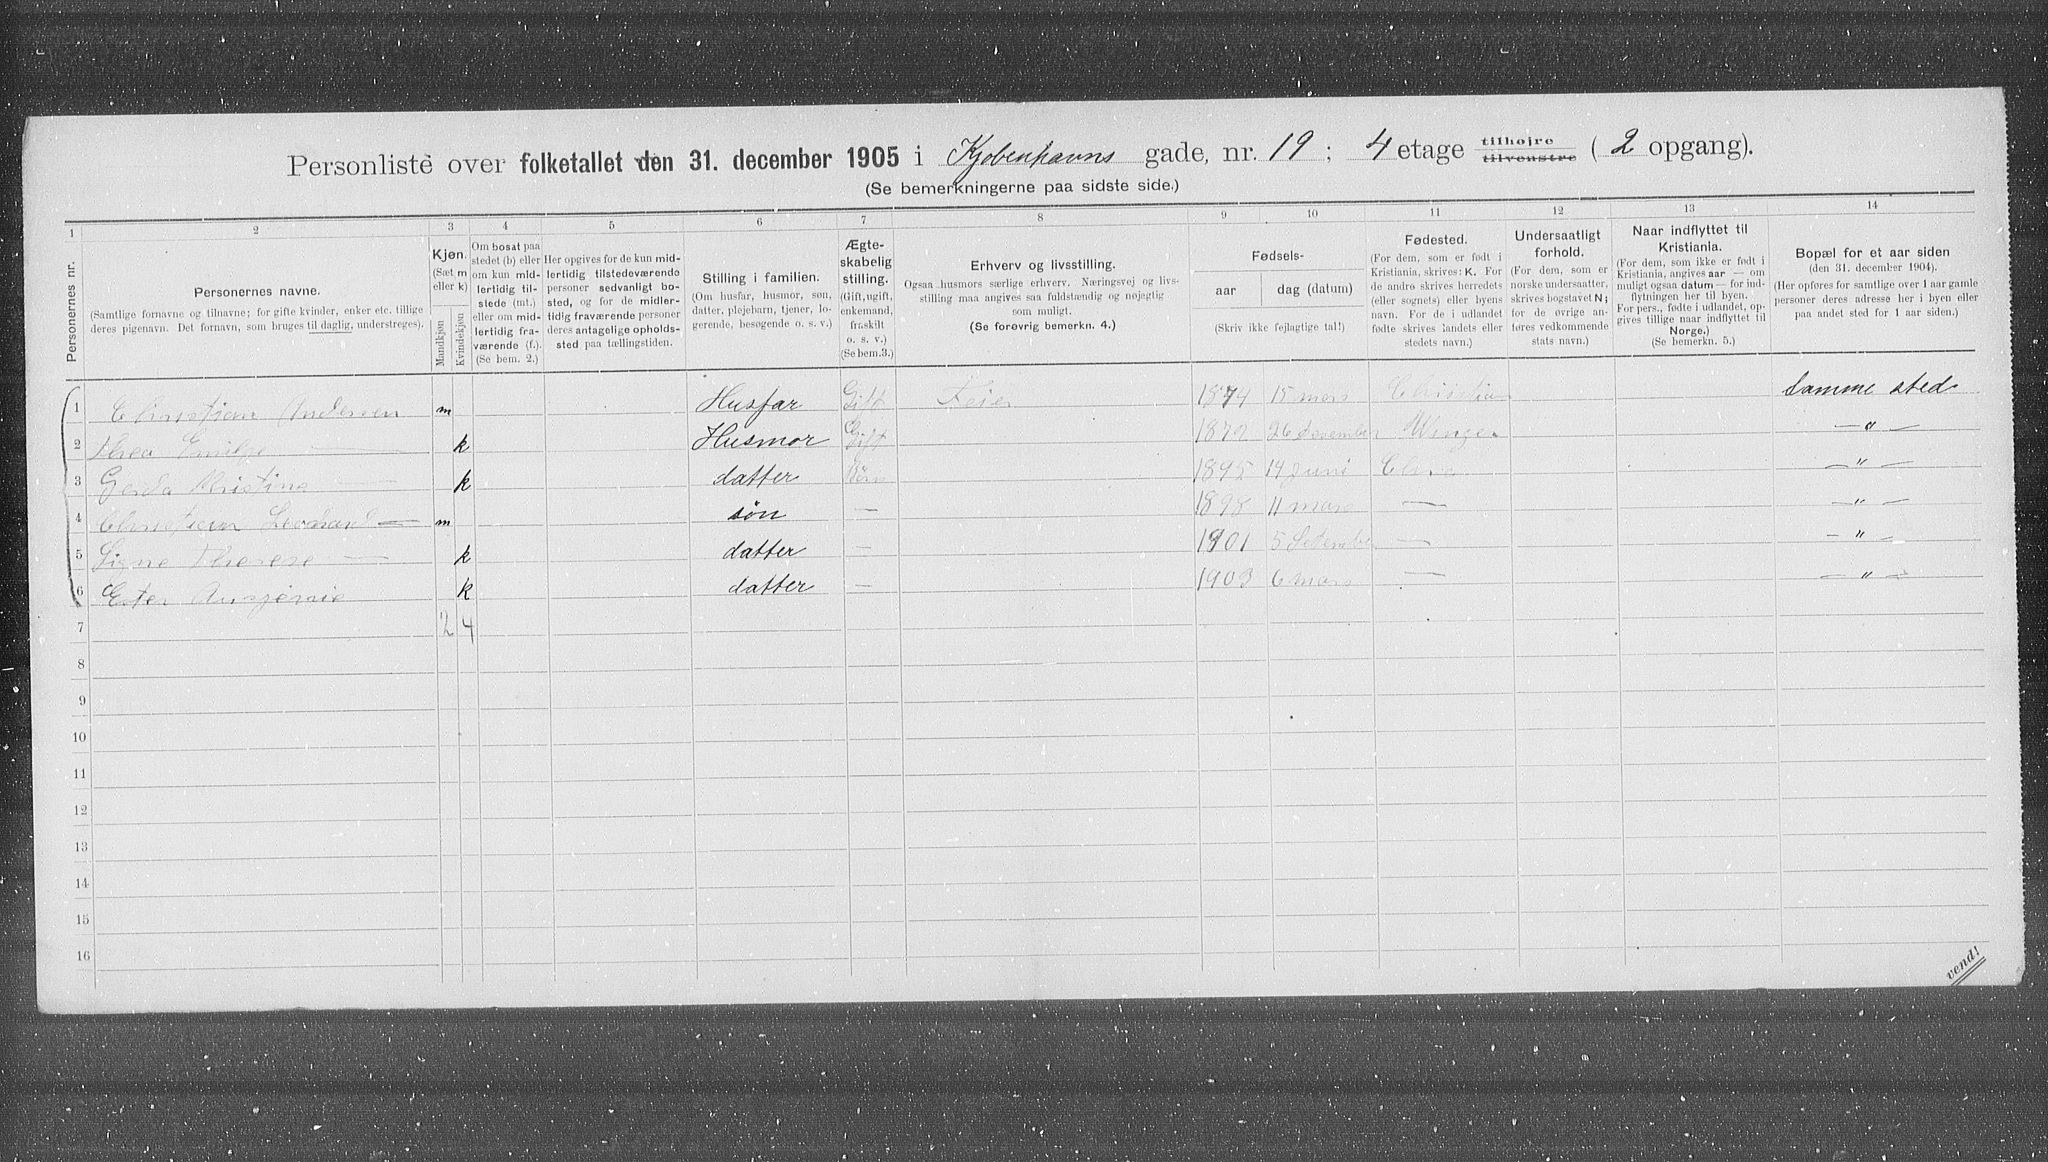 Personliste over folketallet den 31. december 1905 i Kjøbenhavns gade, nr. 19; 4 etage tilhøjre tilvenstre (2 opgang).
(Se bemerkningerne paa sidste side.)
1 2 3 4 5 6 7 8 9 10 11 12 13 14
Personernes nr.
Personernes navne.
(Samtlige fornavne og tilnavne; for gifte kvinder, enker etc. tillige
deres pigenavn. Det fornavn, som bruges til daglig, understreges).
Kjøn.
(Sæt m
eller k)
Mandkjøn
Kvindekjøn
Om bosat paa
stedet (b) eller
om kun mid-
lertidig til-
stede (mt.)
eller om mid-
lertidig fra-
værende (f.).
(Se bem. 2.)
Her opgives for de kun mid-
lertidig tilstedeværende
personer sedvanligt bo-
sted, og for de midler-
tidig fraværende personer
deres antagelige opholds-
sted paa tællingstiden.
Stilling i familien.
(Om husfar, husmor, søn,
datter, plejebarn, tjener, lo-
gerende, besøgende o. s. v.)
Ægte-
skabelig
stilling.
(Gift, ugift,
enkemand,
fraskilt
o. s. v.)
(Se bem.3.)
Erhverv og livsstilling.
Ogsaa husmors særlige erhverv. Næringsvej og livs-
stilling maa angives saa fuldstændig og nøjagtig
som muligt.
(Se forøvrig bemerkn. 4.)
Fødsels-
aar dag (datum)
(Skriv ikke fejlagtige tal!)
Fødested.
(For dem, som er født i
Kristiania, skrives: K. For
de andre skrives herredets
(eller sognets) eller byens
navn. For de i udlandet
fødte skrives landets eller
stedets navn.)
Undersaatligt
forhold.
(For dem, som er
norske undersaatter,
skrives bogstavet N;
for de øvrige an-
føres vedkommende
stats navn.)
Naar indflyttet til
Kristiania.
(For dem, som ikke er født i
Kristiania, angives aar — om
muligt ogsaa datum — for ind-
flytningen her til byen.
For pers., fødte i udlandet, op-
gives tillige naar indflyttet til
Norge.)
(Se bemerkn. 5.)
Bopæl for et aar siden
(den 31. december 1904).
(Her opføres for samtlige over 1 aar gamle
personer deres adresse her i byen eller
paa andet sted for 1 aar siden.)
1 Christian Andersen m Husfar Gift Feier 1874 15 mars Christiania Samme sted
2 Thea Emilie — k Husmor Gift 1872 26 december Vinger — " —
3 Gerda Kristine — k datter 1895 14 juni Chra — " —
4 Christian Leonard — m søn — 1898 11 mars — — " —
5 Signe Therese — k datter — 1901 5 Setember — — " —
6 Ester k datter — 1903 6 mars — — " —
7 2 4
8
9
10
11
12
13
14
15
16
vend!